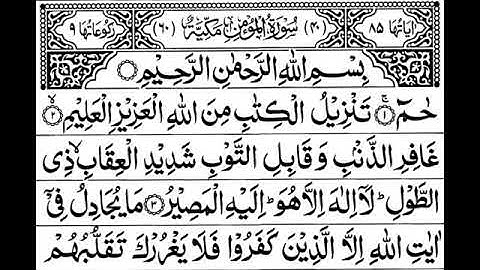 اٰيَاتُهَا ٨٥ (٤٠) سُوْرَةُ الْمُؤْمِنِ مَكِّيَّةٌ (٦٠) رُكُوْعَاتُهَا ٩
بِسْمِ اللّٰهِ الرَّحْمٰنِ الرَّحِيْمِ
حٰمٓ ۚ﴿۱﴾ تَنْزِيْلُ الْكِتٰبِ مِنَ اللّٰهِ الْعَزِيْزِ الْعَلِيْمِ ۙ﴿۲﴾
غَافِرِ الذَّنْۢبِ وَقَابِلِ التَّوْبِ شَدِيْدِ الْعِقَابِ ۙ ذِى
الطَّوْلِ ؕ لَاۤ اِلٰهَ اِلَّا هُوَ ؕ اِلَيْهِ الْمَصِيْرُ ﴿۳﴾ مَا يُجَادِلُ فِىْۤ
اٰيٰتِ اللّٰهِ اِلَّا الَّذِيْنَ كَفَرُوْا فَلَا يَغْرُرْكَ تَقَلُّبُهُمْ